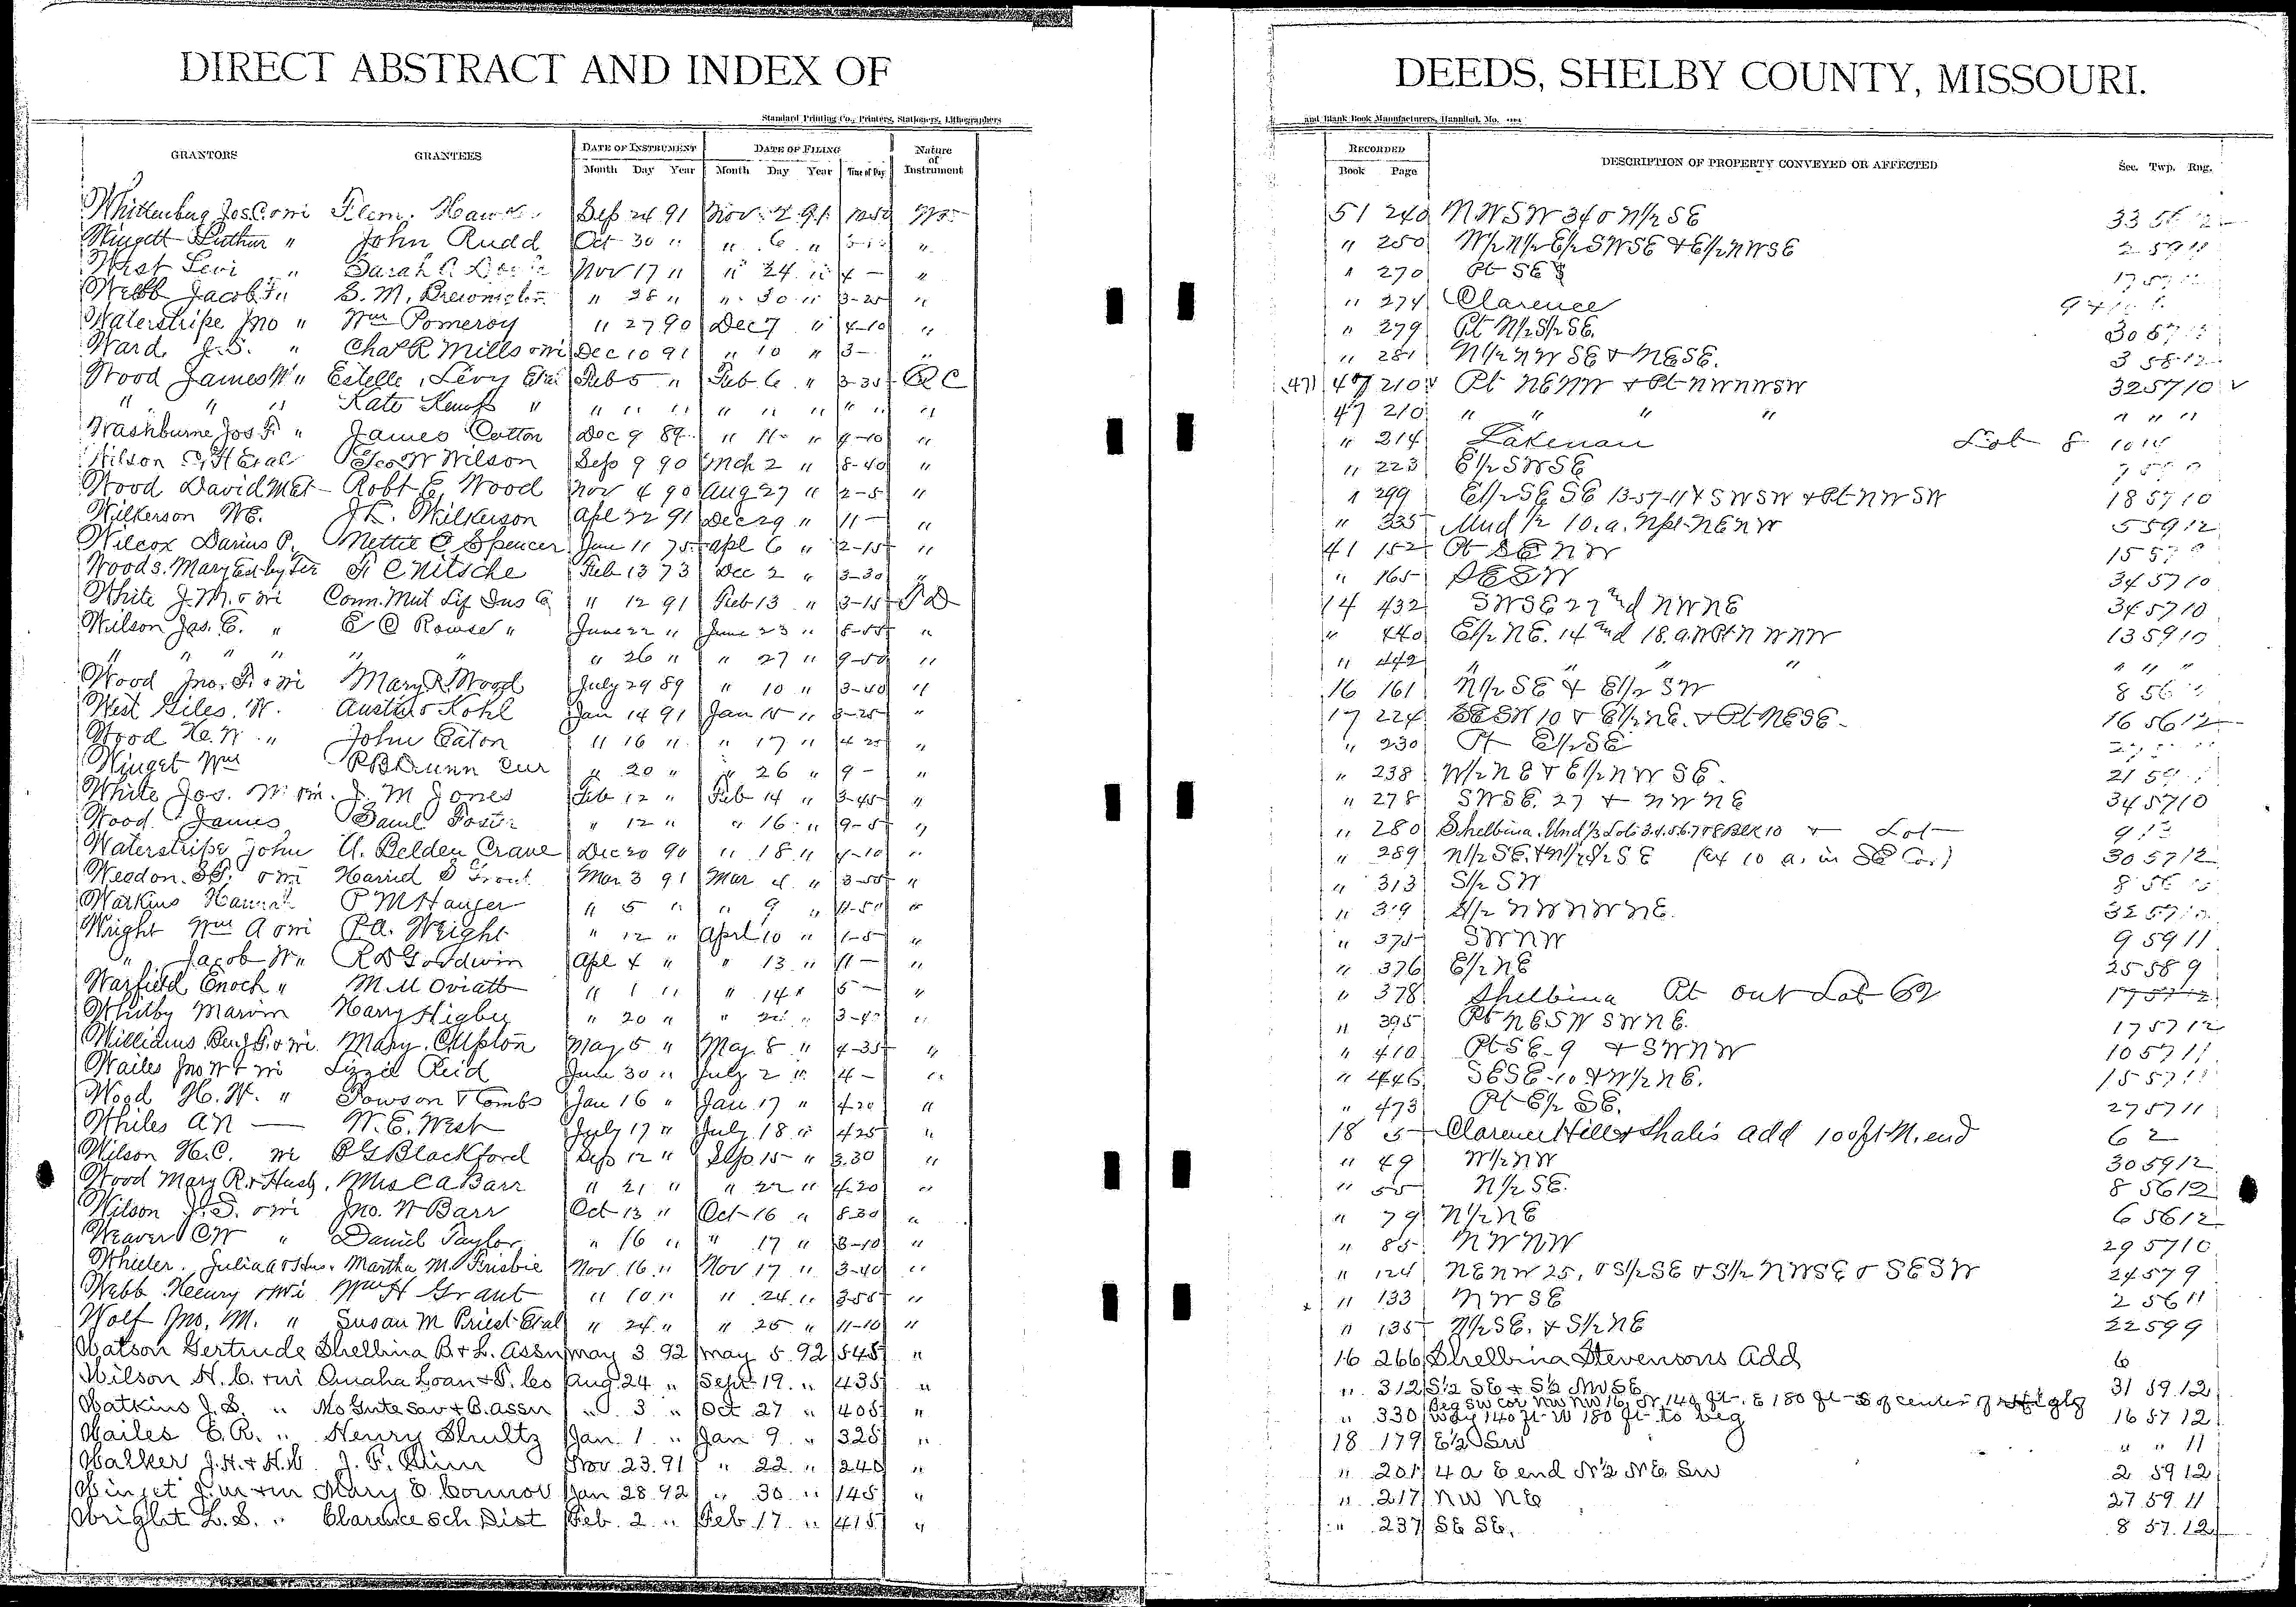 DIRECT ABSTRACT AND INDEX OF DEEDS, SHELBY COUNTY, MISSOURI.
Standard Printing Co., Printers, Stationers, Lithographers and Blank Book Manufacturers, Hannibal, Mo.
GRANTORS GRANTEES DATE OF INSTRUMENT DATE OF FILING Nature of Instrument RECORDED DESCRIPTION OF PROPERTY CONVEYED OR AFFECTED Sec. Twp. Rng.
Month Day Year Month Day Year Time of Day Book Page
Whittenburg Jos. C. o wi Flem. Sep 24 91 Nov 2 91 51 240 NWSW 34 o N1/2 SE 33 56 12
Wingett Luthur " John Rudd Oct 30 " " 6 " " " 250 W1/2 N1/2 E1/2 SWSE + E1/2 NWSE 2 59 11
West Levi " Sarah Nov 17 " " 24 " 4 - " " 270 Pt SE
Webb Jacob F " S. M. " 28 " " 30 " 3-25 " " 274 Clarence
Waterstripe Jno " Wm Pomeroy " 27 90 Dec 7 " 4-10 " " 279 Pt N1/2 S1/2 SE. 30 57 12
Ward J. S. " Chas R Mills o wi Dec 10 91 " 10 " 3 - " " 281 N1/2 NW SE + NESE. 3 58 12
Wood James W " Estelle Levy Etal Feb 5 " Feb 6 " 3-35 QC 47 210 Pt NENW + Pt NWNWSW 32 57 10
" " " Kate " " " " " " " " " " 47 210 " " " " " " "
Washburne Jos F. " James Cotton Dec 9 89 " 11 " 4-10 " " 214 Lakenan Lot 8 10 14
Wilson Etal Geo W Wilson Sep 9 90 Mch 2 " 8-40 " " 223 E1/2 SWSE
Wood David M Et - Robt E. Wood Nov 4 90 Aug 27 " 2-5 " " 299 E1/2 SE SE 13-57-11 + SWSW + Pt NWSW 18 57 10
Wilkerson WE. J. Wilkerson Apl 22 91 Dec 29 " 11 - " " 335 Und 1/2 10. a. Npt NENW 5 59 12
Wilcox Darius P. Nettie C Spencer Jan 11 75 Apl 6 " 2-15 " 41 152 Pt SENW 15 57
Woods. Mary F. C Nitsche Feb 13 73 Dec 2 " 3-30 " " 165 SESW 34 57 10
White J. M. o wi Conn. Mut Lif Ins Co " 12 91 Feb 13 " 3-15 TD 14 432 SWSE 27 and NWNE 34 57 10
Wilson Jas. E. " E C Rowse " June 22 " June 23 " 8-55 " " 440 E1/2 NE. 14 and 18. a. WPt NWNW 13 59 10
" " " " " " " 26 " " 27 " 9-50 " " 442 " " " " " " "
Wood Jno. F. o wi Mary R. Wood July 29 89 " 10 " 3-40 " 16 161 N1/2 SE + E1/2 SW 8 56
West Giles. W. Austin o Kohl Jan 14 91 Jan 15 " 3-25 " 17 224 SESW 10 + E1/2 NE. + Pt NESE 16 56 12
Wood H. W. " John Eaton " 16 " " 17 " 4 25 " " 230 Pt E1/2 SE
Winget Wm P B Dunn Cur " 20 " " 26 " 9 - " " 238 W1/2 NE + E1/2 NW SE. 21 59
White Jos. W o wi. J. M Jones Feb 12 " Feb 14 " 3-45 " " 278 SWSE. 27 + NWNE 34 57 10
Wood James Saml Foster " 12 " " 16 " 9-5 " " 280 Shelbina. Und 1/3 Lots 3.4.5.6.7 o 8 Blk 10 + Lot
Waterstripe John A. Belden Crane Dec 20 90 " 18 " 4-10 " " 289 N1/2 SE. + N1/2 S1/2 SE (ex 10 a. in SE Cor.) 30 57 12
Weedon. o wi Harried S Mar 3 91 Mar 4 " 3-50 " " 313 S1/2 SW 8 56
Watkins Hannah P M Hanger " 5 " " 9 " 11-50 " " 319 NWNWNE. 32 57 10
Wright Wm A o wi P. A. Wright " 12 " April 10 " 1-5 " " 375 SWNW 9 59 11
" Jacob W " R D Goodwin Apl 4 " " 13 " 11 - " " 376 E1/2 NE 25 58 9
Warfield Enoch " M M Oviatt " 1 " " 14 " 5 - " " 378 Shelbina Pt out Lot 62 17 57 12
Whitby Marvin Harry Higbee " 20 " " " " 395 Pt NESW SWNE. 17 57 12
Williams Benj F. o wi. Mary. C Upton May 5 " May 8 " 4-35 " " 410 Pt SE-9 + SWNW 10 57 11
Wailes Jno W + wi Lizzie Reid June 30 " July 2 " 4 - " " 446 SESE-10 + W1/2 NE. 15 57 11
Wood H. W. " Towson + Combs Jan 16 " Jan 17 " 4-20 " " 473 Pt E1/2 SE. 27 57 11
Whiles AN — W. E. West July 17 " July 18 " 4 25 " 18 5 Clarence Hill + add 100 ft N. end 6 2
Wilson H. C. wi P G Blackford Sep 12 " Sep 15 " 3.30 " " 49 W1/2 NW 30 59 12
Wood Mary R. + Husb. Mrs C A Barr " 21 " " 22 " 4.20 " " 55 N1/2 SE. 8 56 12
Wilson J. S. o wi Jno. W Barr Oct 13 " Oct 16 " 8 30 " " 79 N1/2 NE 6 56 12
Weaver C W " Daniel Taylor " 16 " " 17 " 3-10 " " 85 NWNW 29 57 10
Wheeler. Julia A o Hus. Martha M. Frisbie Nov 16 " Nov 17 " 3-40 " " 124 NENW 25, o S1/2 SE + S1/2 NWSE o SESW 24 57 9
Webb Henry o wi Wm H Grant " 10 " " 24 " 3 50 " " 133 NWSE 2 56 11
Wolf Jno. M. " Susan M Priest Etal " 24 " " 25 " 11-10 " " 135 N1/2 SE. + S1/2 NE 22 59 9
Watson Gertrude Shelbina B. + L. Assn May 3 92 May 5 92 545 " 16 266 Shelbina Stevensons Add 6
Wilson H. C. + wi Omaha Loan + T. Co Aug 24 " Sept 19. " 435 " " 312 S1/2 SE + S1/2 NWSE 31 59.12
Watkins J. S. " Mo Gnte Sav + B. Assn " 3 " Oct 27 " 405 " " 330 Beg SW cor NW NW 16, N 140 ft. E 180 ft S of center of High 16 57 12
way 140 ft W 180 ft to beg
Wailes E. R. " Henry Shultz Jan. 1 " Jan 9 " 325 " 18 179 E1/2 SW " " 11
Walker J. H. + H. W. J. F. Nov. 23. 91 " 22 " 240 " " 201 4 a E end N1/2 NE SW 2 59 12
Winget J. M + wi Mary E. Connor Jan 28. 92 " 30 " 145 " " 217 NW NE 27 59. 11
Wright L. S. " Clarence Sch Dist Feb. 2 " Feb 17 " 415 " " 237 SE SE. 8 57. 12